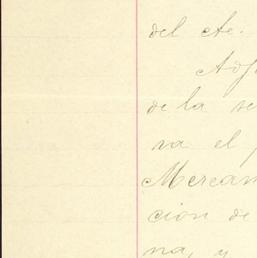 del cte.
Adj
de la se
va el p
Mercan
ción de
na, y